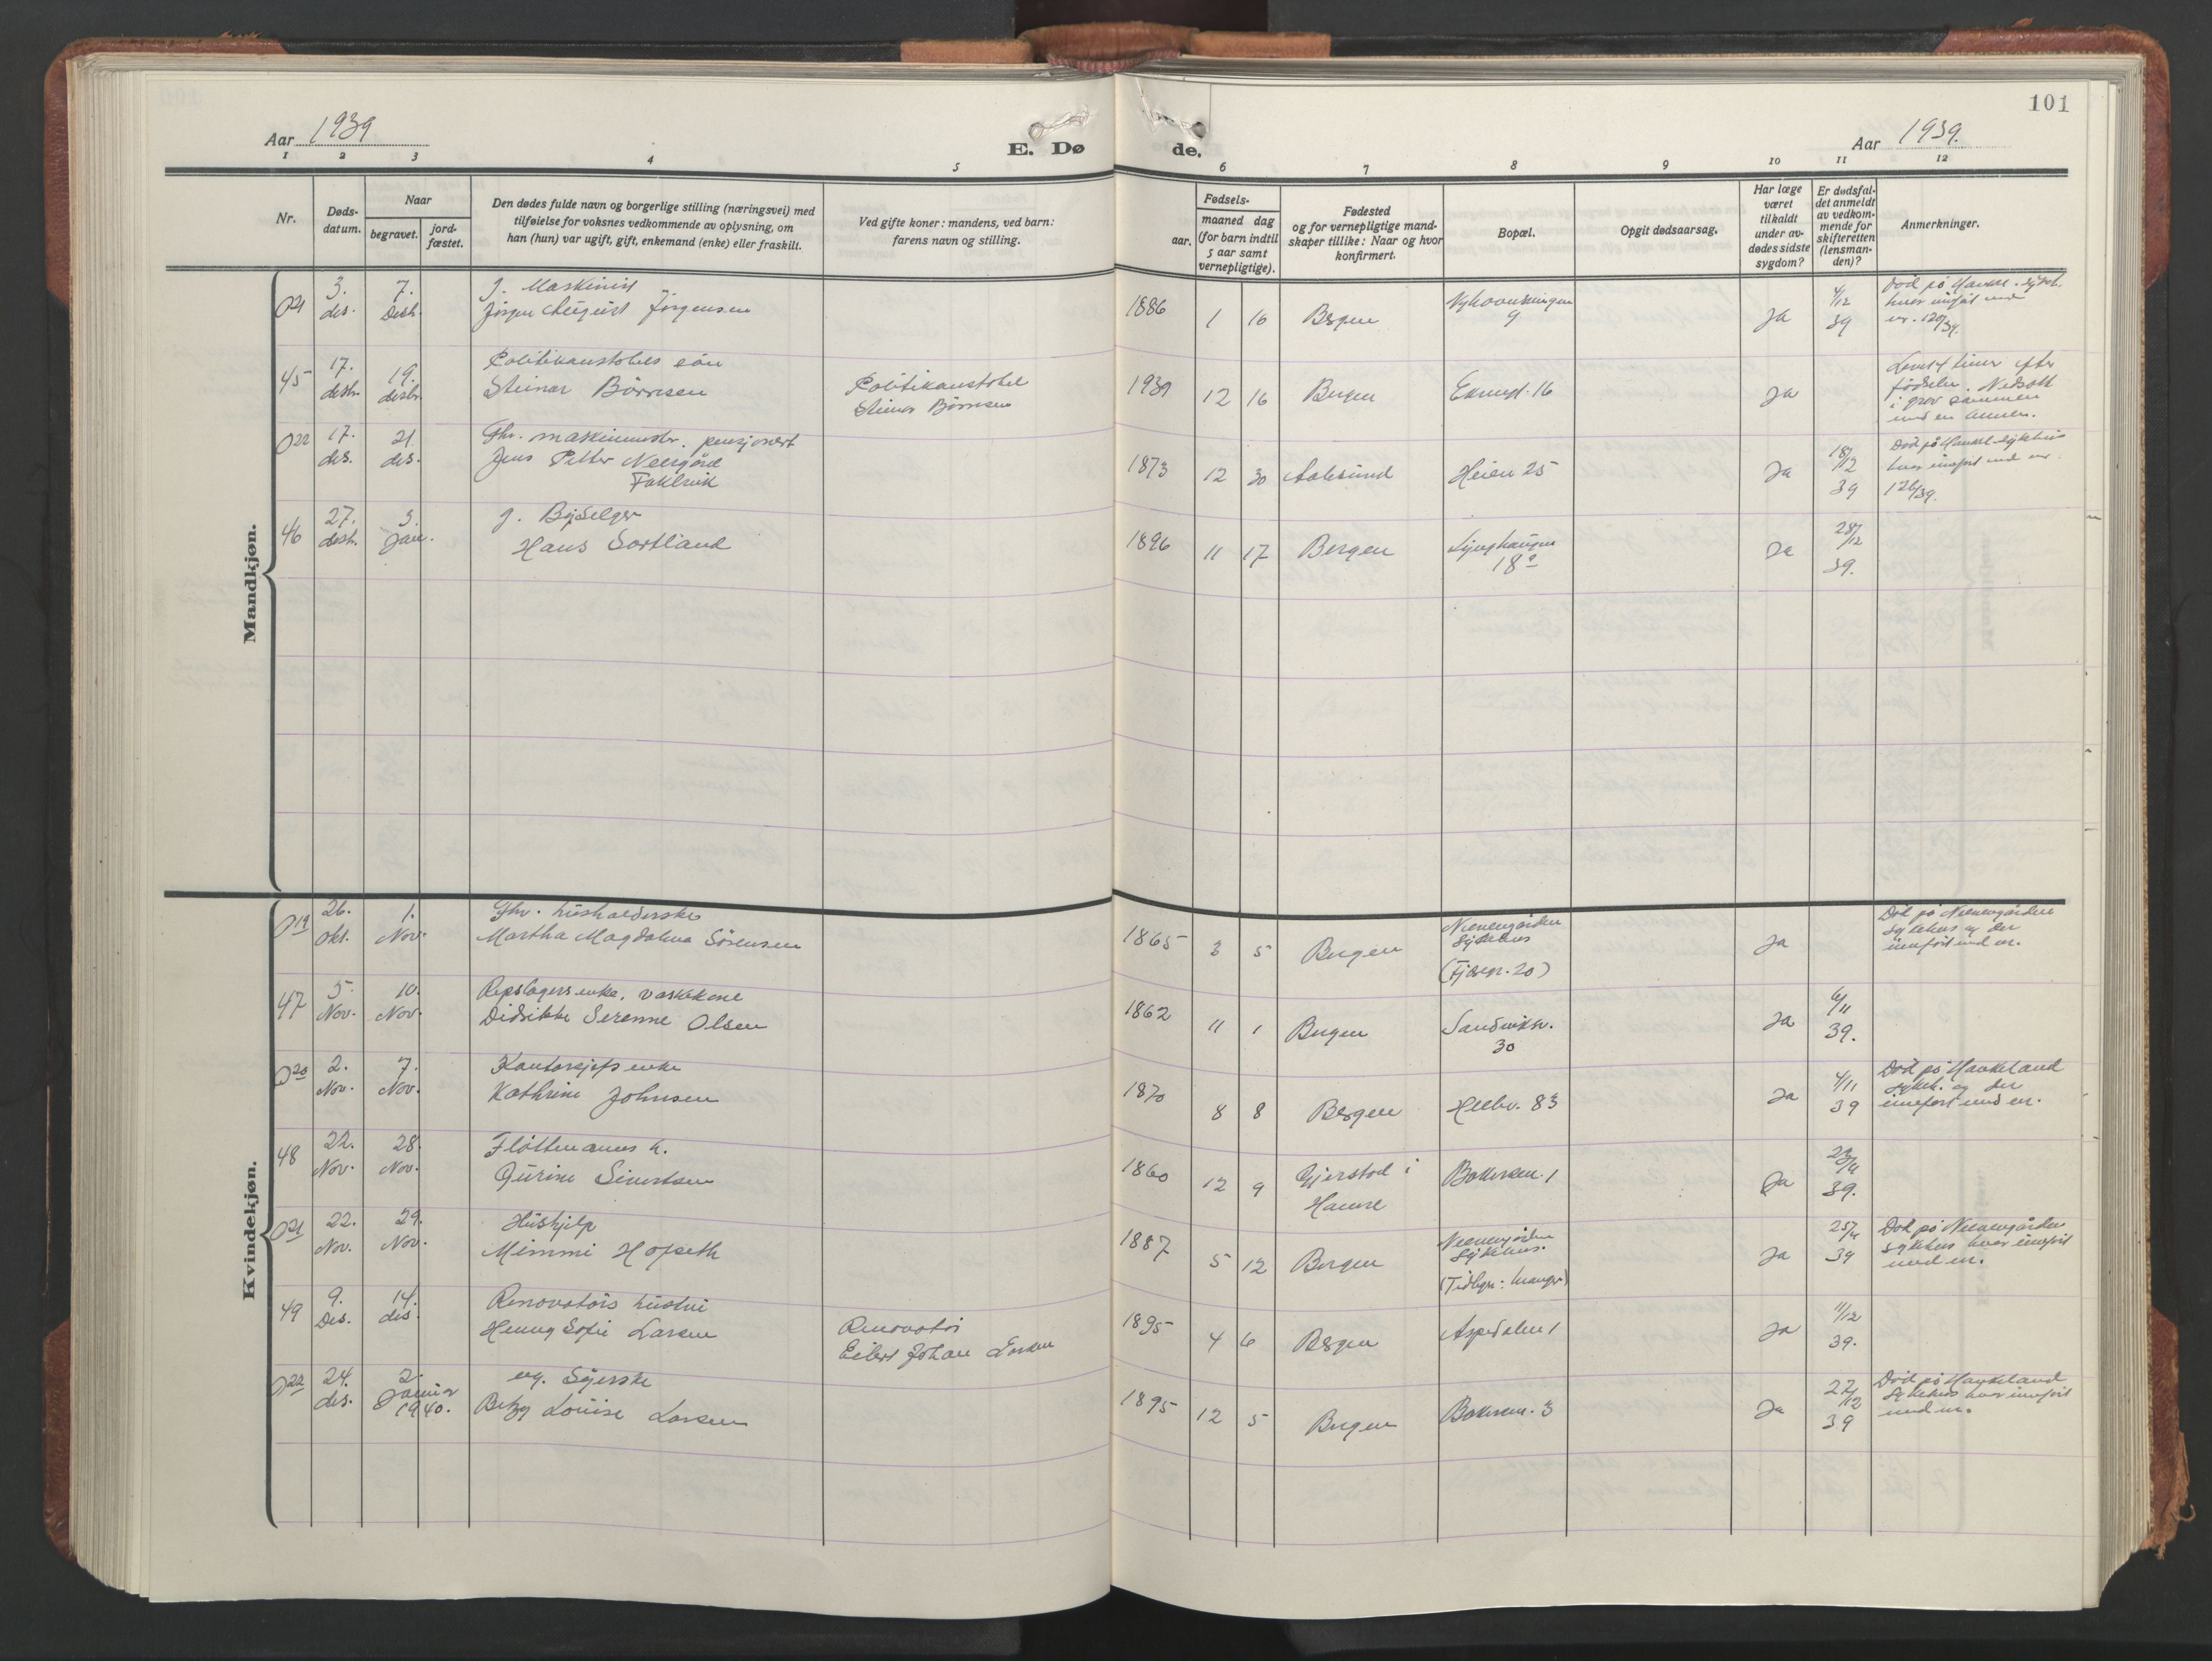 101
Aar 1939
E. Dø
de.
Aar 1939.
1 2 3 4 5 6 7 8 9 10 11 12
Nr.
Døds-
datum.
Naar
begravet.
jord-
fæstet.
Den dødes fulde navn og borgerlige stilling (næringsvei) med
tilføielse for voksnes vedkommende av oplysning, om
han (hun) var ugift, gift, enkemand (enke) eller fraskilt.
Ved gifte koner: mandens, ved barn:
farens navn og stilling.
Fødsels-
aar.
maaned dag
(for barn indtil
5 aar samt
vernepligtige).
Fødested
og for vernepligtige mand-
skaper tillike: Naar og hvor
konfirmert.
Bopæl.
Opgit dødsaarsag.
Har læge
været
tilkaldt
under av-
dødes sidste
sygdom?
Er dødsfal-
det anmeldt
av vedkom-
mende for
skifteretten
(lensman-
den)?
Anmerkninger.
Mandkjøn.
O21 3. des. 7. Desb.
g. Maskinist
Jörgen August Jörgensen
1886 1 16 Bergen
9
Ja 4/12 39
Död på Haukel. sykeh.
hvor innfört med
nr. 120/39.
45 17. desbr. 19. desbr.
Politikonstabels sön
Steinar Börresen
Politikonstabel
Steinar Börresen
1939 12 16 Bergen
16
Ja
Levet timer efter
födselen. Nedsatt
i grav sammen
med en annen.
O22 17. des. 21. des.
Fhv. maskinmstr. pensjonert
Jens Petter Neergård
1873 12 30 Aalesund
Heien 25
Ja 18/12 39
Död på Haukel. Sykehus
hvor innfört med nr.
126/39.
46 27. desb. 3. Jan.
g. Bydselger
Hans Sortland
1896 11 17 Bergen
Lynghaugen
18a
Ja 28/12 39.
Kvindekjøn.
O19 26. Okt. 1. Nov.
Fhv. husholderske
Martha Magdalena Sörensen
1865 3 5 Bergen
Neevengården
Sykehus
(Fjöögr. 20)
Ja
Död på Neevengården
Sykehus og der
innfört med nr.
47 5. Nov. 10. Nov.
Repslagers enke, vaskekone
Didrikke Serenne Olsen
1862 11 1 Bergen
Sandviksv.
30
Ja 6/11 39.
O20 2. Nov. 7. Nov.
Kontorsjefs enke
Kathrine Johnsen
1870 8 8 Bergen
Hellev. 83
Ja 4/11 39
Död på Haukeland
sykeh. og der
innfört med nr.
48 22. Nov. 28. Nov.
Flöttmanns h.
Gurine Sivertsen
1860 12 9 Gjerstad i
Hamre
Bakersm. 1
Ja 23/11 39.
O21 22. Nov. 29. Nov.
Hushjelp
Mimmi Hopseth
1887 5 12 Bergen
Neevengården
Sykehus.
Ja 25/11 39
Död på Neevengården
sykehus hvor innfört
med nr.
49 9. Des. 14. des.
Renovatörs hustru
Henny Sofie Larsen
Renovatör
Eilert Johan Larsen
1895 4 6 Bergen
Aspedalen 1
Ja 11/12 39.
O22 24. des. 2. Januar 1940.
ug. Syerske
Betzy Louise Larsen
1895 12 5 Bergen
Bakersm. 3
Ja 27/12 39
Död på Haukeland
Sykehus hvor innfört
med nr.